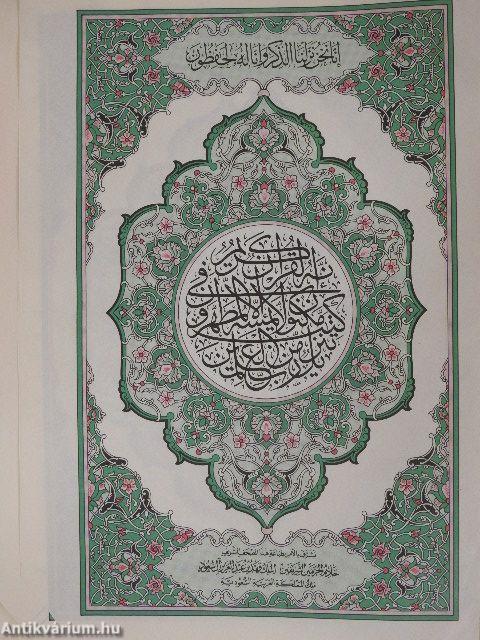 إنا نحن نزلنا الذكر وإنا له لحافظون
إنه لقرآن كريم
في كتاب مكنون
لا يمسه إلا المطهرون
تنزيل من رب العالمين
تشرف بالأمر بطباعة هذا المصحف الشريف
خادم الحرمين الشريفين الملك فهد بن عبد العزيز آل سعود
ملك المملكة العربية السعودية
Antikvárium.hu